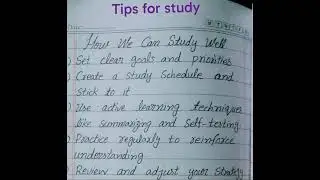 Tips for study
How We Can Study Well
Set clear goals and priorities
Create a study Schedule and
stick to it
Use active learning techniques
like summarizing and Self-testing
Practice regularly to reinforce
understanding
Review and adjust your strategy